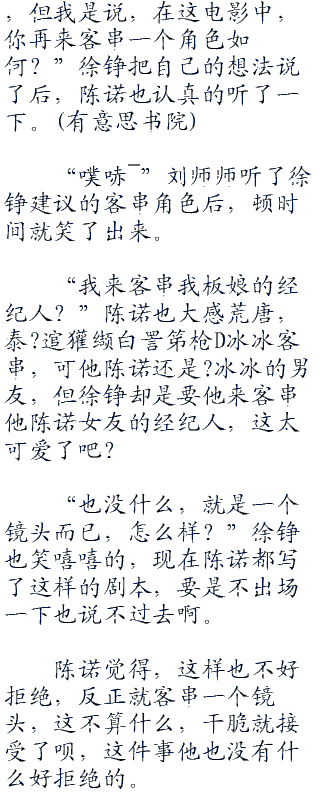 ，但我是说，在这电影中，
你再来客串一个角色如
何？”徐铮把自己的想法说
了后，陈诺也认真的听了一
下。(有意思书院)
“噗哧¯”刘师师听了徐
铮建议的客串角色后，顿时
间就笑了出来。
“我来客串我板娘的经
纪人？”陈诺也大感荒唐，
泰?渲獾缬白詈笫枪D冰冰客
串，可他陈诺还是?冰冰的男
友，但徐铮却是要他来客串
他陈诺女友的经纪人，这太
可爱了吧？
“也没什么，就是一个
镜头而已，怎么样？”徐铮
也笑嘻嘻的，现在陈诺都写
了这样的剧本，要是不出场
一下也说不过去啊。
陈诺觉得，这样也不好
拒绝，反正就客串一个镜
头，这不算什么，干脆就接
受了呗，这件事他也没有什
么好拒绝的。